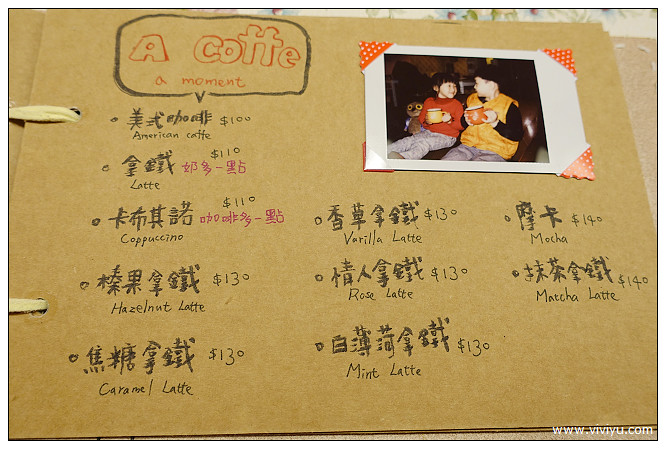 A Coffe
a moment
美式咖啡 $100
American caffe
拿鐵 $110 奶多一點
Latte
卡布其諾 $110 咖啡多一點
Coppuccino
榛果拿鐵 $130
Hazelnut Latte
焦糖拿鐵 $130
Caramel Latte
香草拿鐵 $130
Varilla Latte
情人拿鐵 $130
Rose Latte
白薄荷拿鐵 $130
Mint Latte
摩卡 $140
Mocha
抹茶拿鐵 $140
Matcha Latte
www.viviyu.com